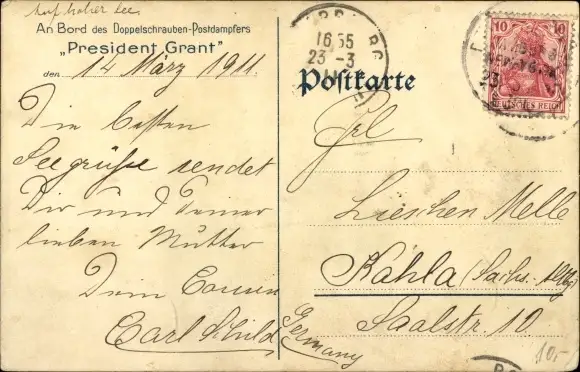 Auf hoher See.
An Bord des Doppelschrauben-Postdampfers
„President Grant"
den 14 März 1911.
Die besten
Seegrüße sendet
Dir und Deiner
lieben Mutter
Dein Cousin
Carl Schild
16 55
23 - 3
Postkarte
10
DEUTSCHES REICH
Frl
Lieschen Melle
Kahla (Sachs. Altbg)
Saalstr. 10
Germany
10,-